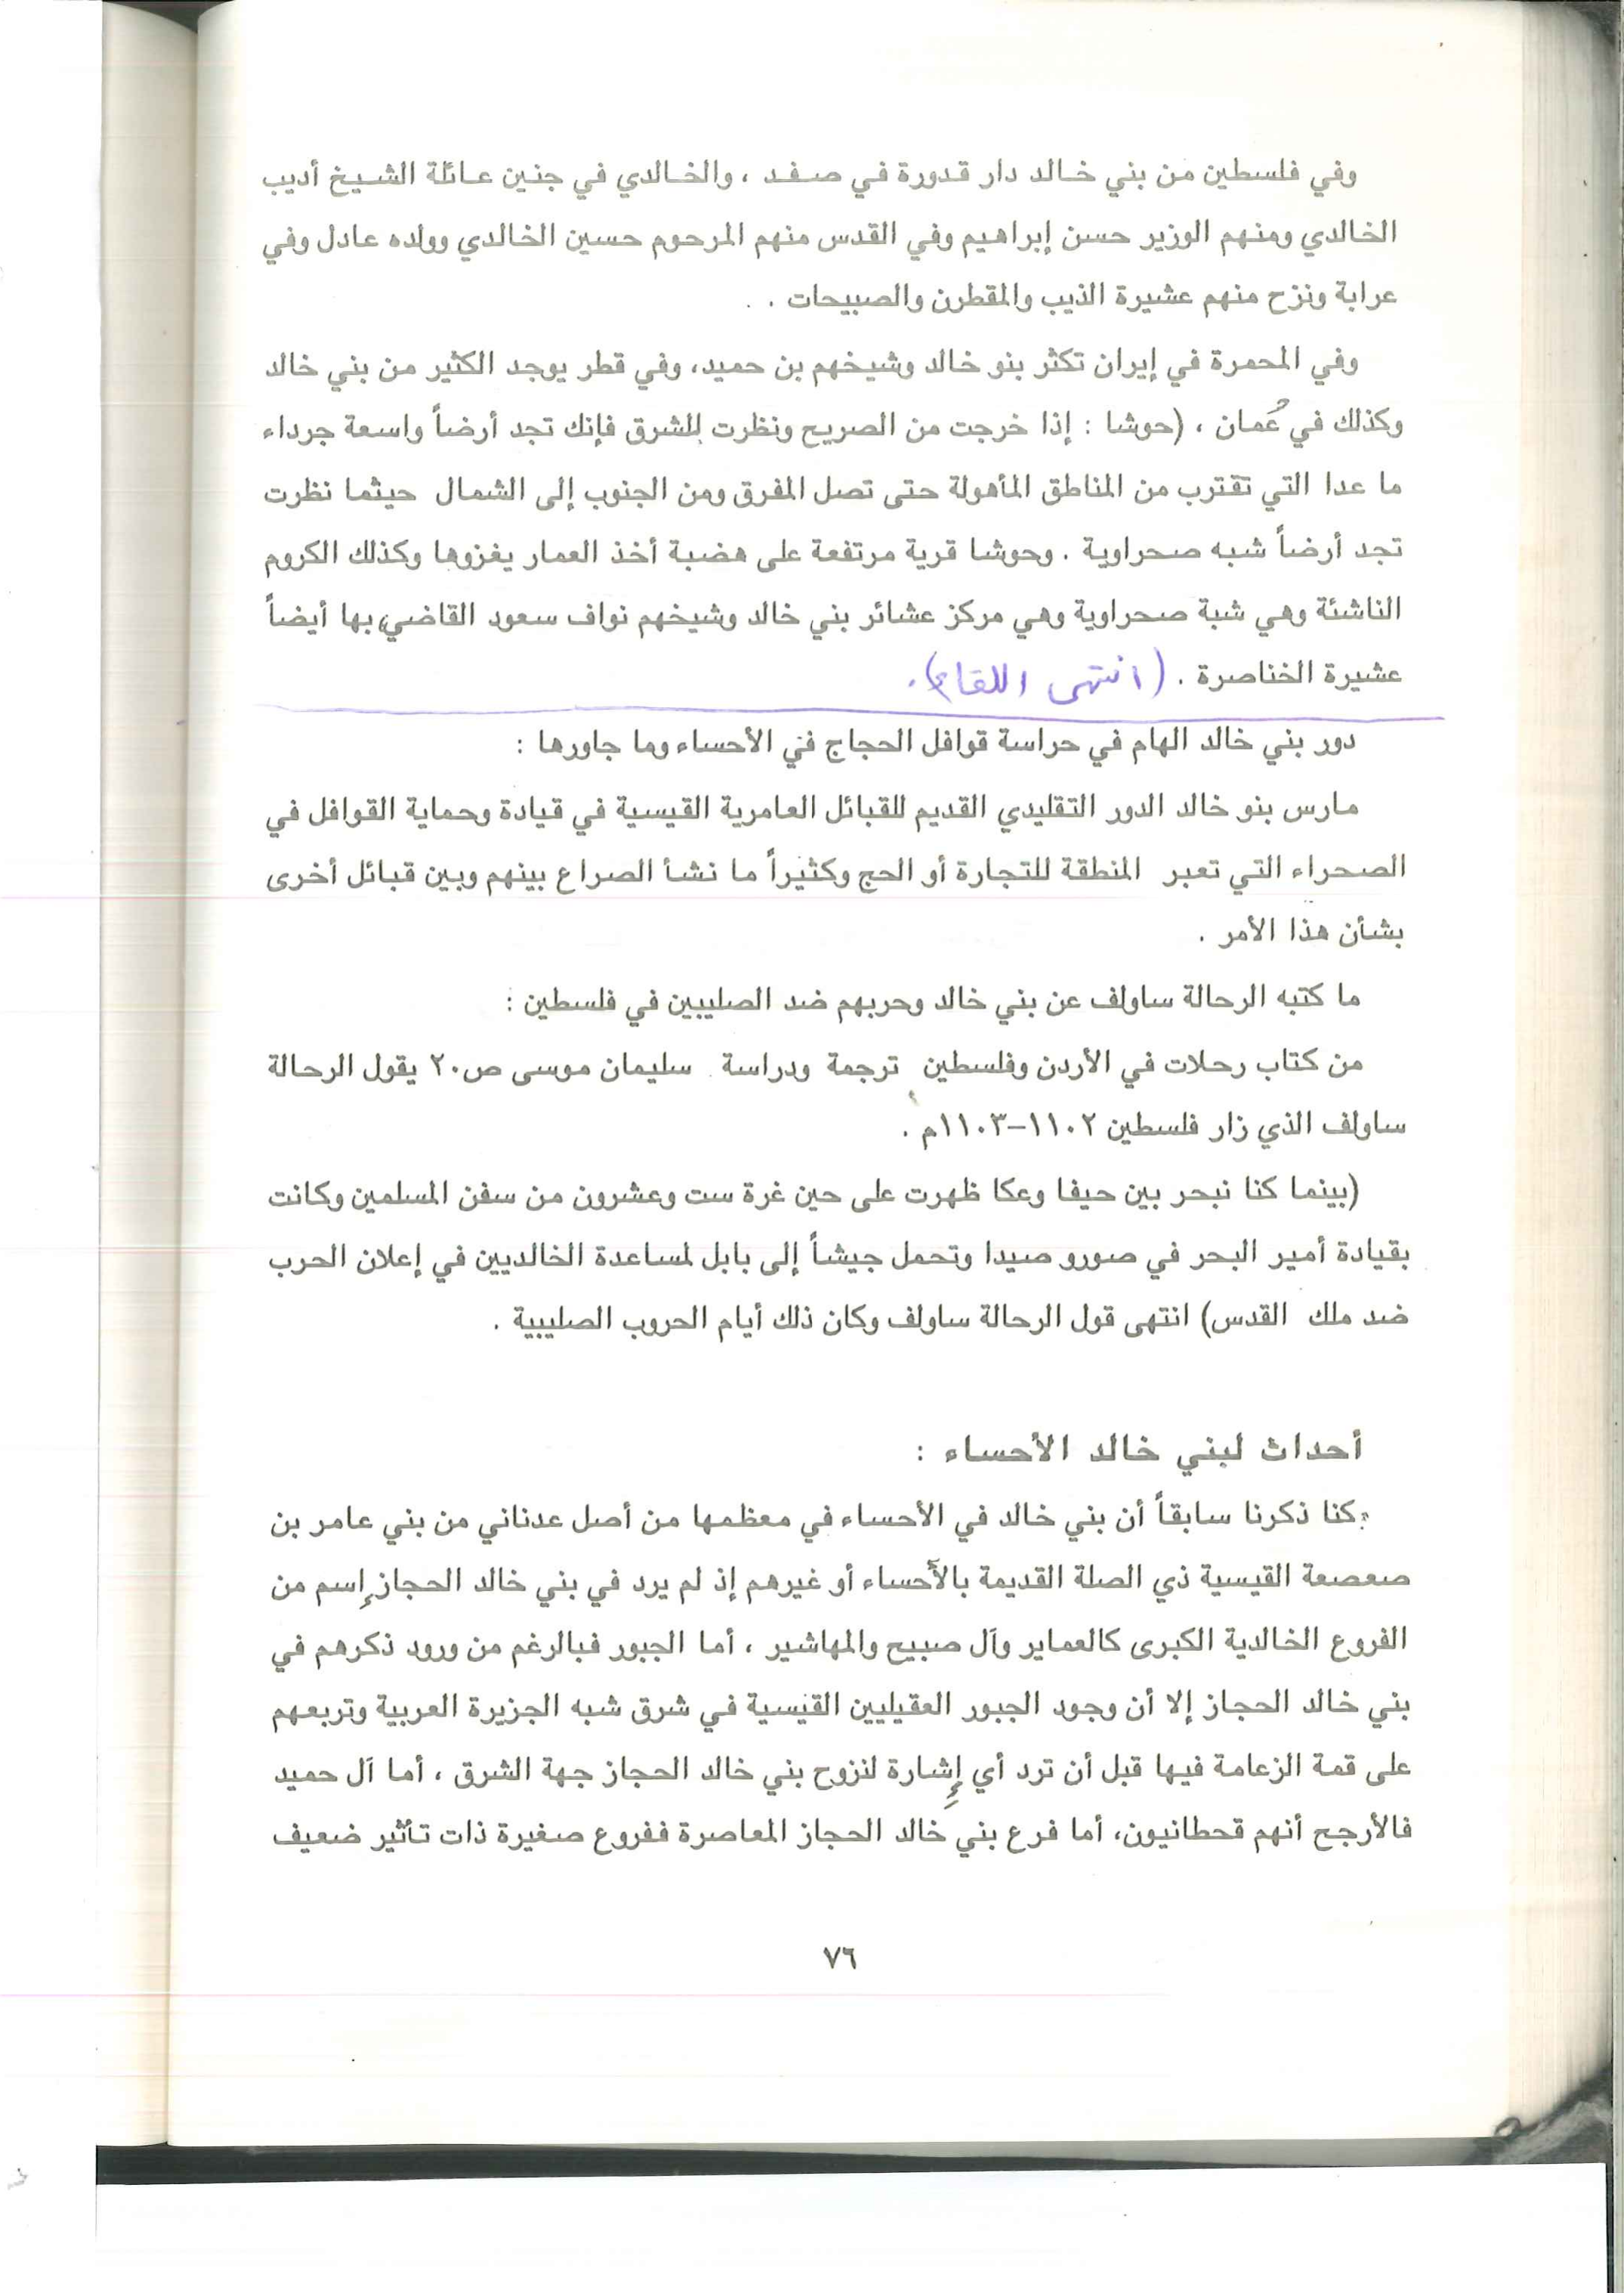 وفي فلسطين من بني خالد دار قدورة في صفد ، والخالدي في جنين عائلة الشيخ أديب
الخالدي ومنهم الوزير حسن إبراهيم وفي القدس منهم المرحوم حسين الخالدي وولده عادل وفي
عرابة ونزح منهم عشيرة الذيب والمقطرن والصبيحات .
وفي المحمرة في إيران تكثر بنو خالد وشيخهم بن حميد، وفي قطر يوجد الكثير من بني خالد
وكذلك في عُمان ، (حوشا : إذا خرجت من الصريح ونظرت للشرق فإنك تجد أرضاً واسعة جرداء
ما عدا التي تقترب من المناطق المأهولة حتى تصل المفرق ومن الجنوب إلى الشمال حيثما نظرت
تجد أرضاً شبه صحراوية . وحوشا قرية مرتفعة على هضبة أخذ العمار يغزوها وكذلك الكروم
الناشئة وهي شبة صحراوية وهي مركز عشائر بني خالد وشيخهم نواف سعود القاضي، بها أيضاً
عشيرة الخناصرة . (انتهى اللقاء).
دور بني خالد الهام في حراسة قوافل الحجاج في الأحساء وما جاورها :
مارس بنو خالد الدور التقليدي القديم للقبائل العامرية القيسية في قيادة وحماية القوافل في
الصحراء التي تعبر المنطقة للتجارة أو الحج وكثيراً ما نشأ الصراع بينهم وبين قبائل أخرى
بشأن هذا الأمر .
ما كتبه الرحالة ساولف عن بني خالد وحربهم ضد الصليبين في فلسطين :
من كتاب رحلات في الأردن وفلسطين ترجمة ودراسة سليمان موسى ص٢٠ يقول الرحالة
ساولف الذي زار فلسطين ١١٠٢–١١٠٣م .
(بينما كنا نبحر بين حيفا وعكا ظهرت على حين غرة ست وعشرون من سفن المسلمين وكانت
بقيادة أمير البحر في صورو صيدا وتحمل جيشاً إلى بابل لمساعدة الخالديين في إعلان الحرب
ضد ملك القدس) انتهى قول الرحالة ساولف وكان ذلك أيام الحروب الصليبية .
أحداث لبني خالد الأحساء :
كنا ذكرنا سابقاً أن بني خالد في الأحساء في معظمها من أصل عدناني من بني عامر بن
صعصعة القيسية ذي الصلة القديمة بالأحساء أو غيرهم إذ لم يرد في بني خالد الحجاز إسم من
الفروع الخالدية الكبرى كالعماير وآل صبيح والمهاشير ، أما الجبور فبالرغم من ورود ذكرهم في
بني خالد الحجاز إلا أن وجود الجبور العقيليين القيسية في شرق شبه الجزيرة العربية وتربعهم
على قمة الزعامة فيها قبل أن ترد أي إشارة لنزوح بني خالد الحجاز جهة الشرق ، أما آل حميد
فالأرجح أنهم قحطانيون، أما فرع بني خالد الحجاز المعاصرة ففروع صغيرة ذات تأثير ضعيف
٧٦